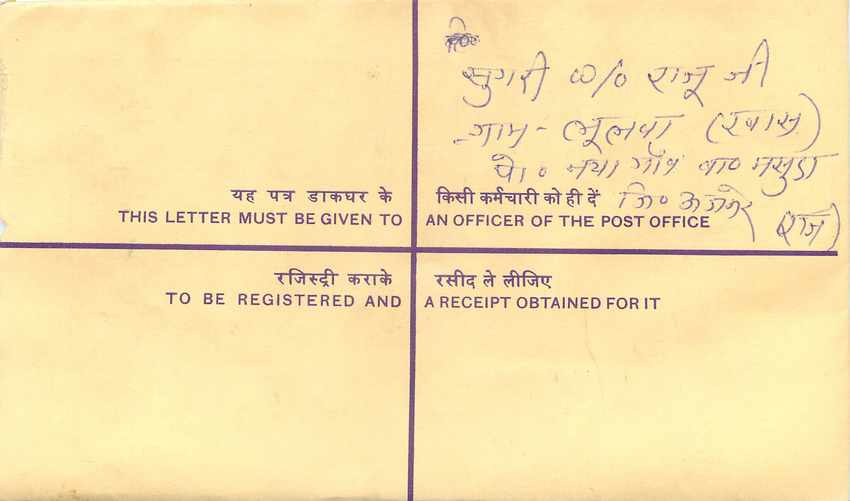 सुगरी w/o राजू जी
ग्राम - लूलवा (खास)
पो० नया गाँव वा० मसुदा
जि० अजमेर
(राज)
यह पत्र डाकघर के किसी कर्मचारी को ही दें
THIS LETTER MUST BE GIVEN TO AN OFFICER OF THE POST OFFICE
रजिस्ट्री कराके रसीद ले लीजिए
TO BE REGISTERED AND A RECEIPT OBTAINED FOR IT